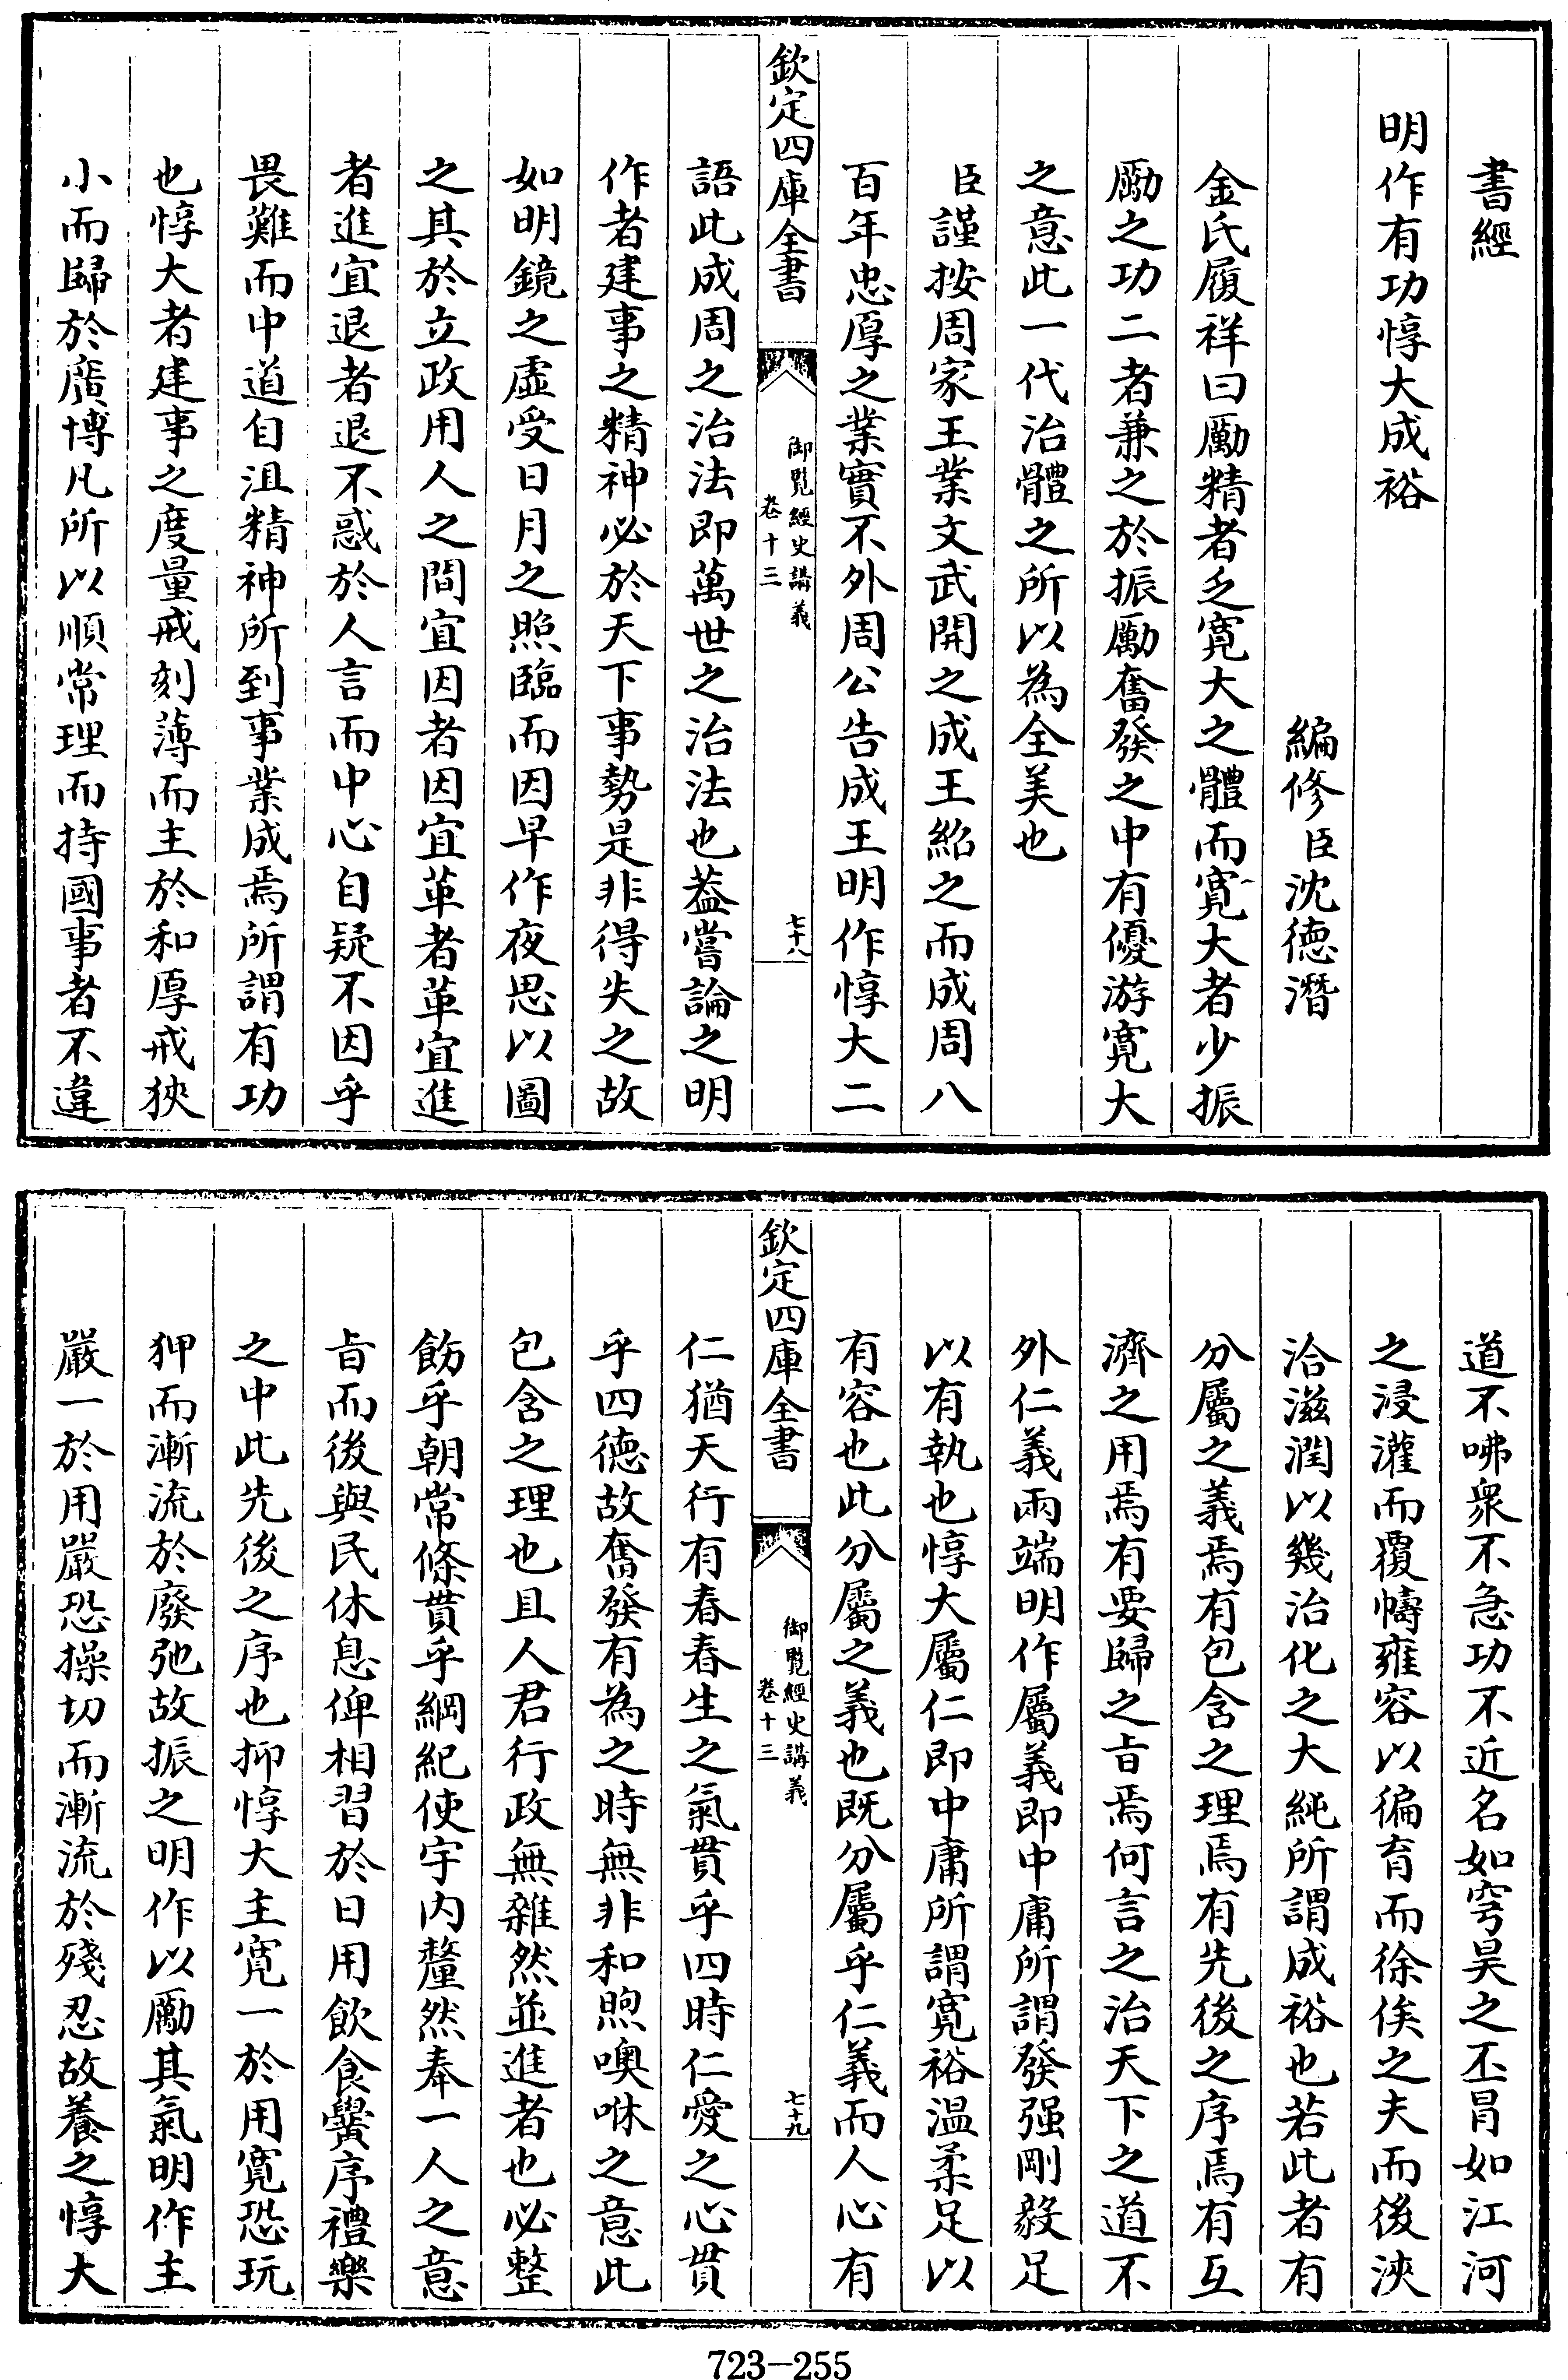 書經
明作有功惇大成裕
編修臣沈德潛
金氏履祥曰勵精者乏寛大之體而寛大者少振
勵之功二者兼之於振勵奮發之中有優游寛大
之意此一代治體之所以為全美也
臣謹按周家王業文武開之成王紹之而成周八
百年忠厚之業實不外周公告成王明作惇大二
欽定四庫全書
御覧經史講義
卷十三
七十八
語此成周之治法即萬世之治法也葢嘗論之明
作者建事之精神必於天下事勢是非得失之故
如明鏡之虛受日月之照臨而因早作夜思以圖
之其於立政用人之間宜因者因宜革者革宜進
者進宜退者退不惑於人言而中心自疑不因乎
畏難而中道自沮精神所到事業成焉所謂有功
也惇大者建事之度量戒刻薄而主於和厚戒狹
小而歸於廣博凡所以順常理而持國事者不違
道不咈衆不急功不近名如穹昊之丕冒如江河
之浸灌而覆幬雍容以徧育而徐俟之夫而後浹
洽滋潤以幾治化之大純所謂成裕也若此者有
分屬之義焉有包含之理焉有先後之序焉有互
濟之用焉有要歸之㫖焉何言之治天下之道不
外仁義兩端明作屬義即中庸所謂發强剛毅足
以有執也惇大屬仁即中庸所謂寛裕温柔足以
有容也此分屬之義也既分屬乎仁義而人心有
欽定四庫全書
御覧經史講義
卷十三
七十九
仁猶天行有春春生之氣貫乎四時仁愛之心貫
乎四德故奮發有為之時無非和煦噢咻之意此
包含之理也且人君行政無雜然並進者也必整
飭乎朝常條貫乎綱紀使宇内釐然奉一人之意
㫖而後與民休息俾相習於日用飲食黌序禮樂
之中此先後之序也抑惇大主寛一於用寛恐玩
狎而漸流於廢弛故振之明作以勵其氣明作主
嚴一於用嚴恐操切而漸流於殘忍故養之惇大
723-255